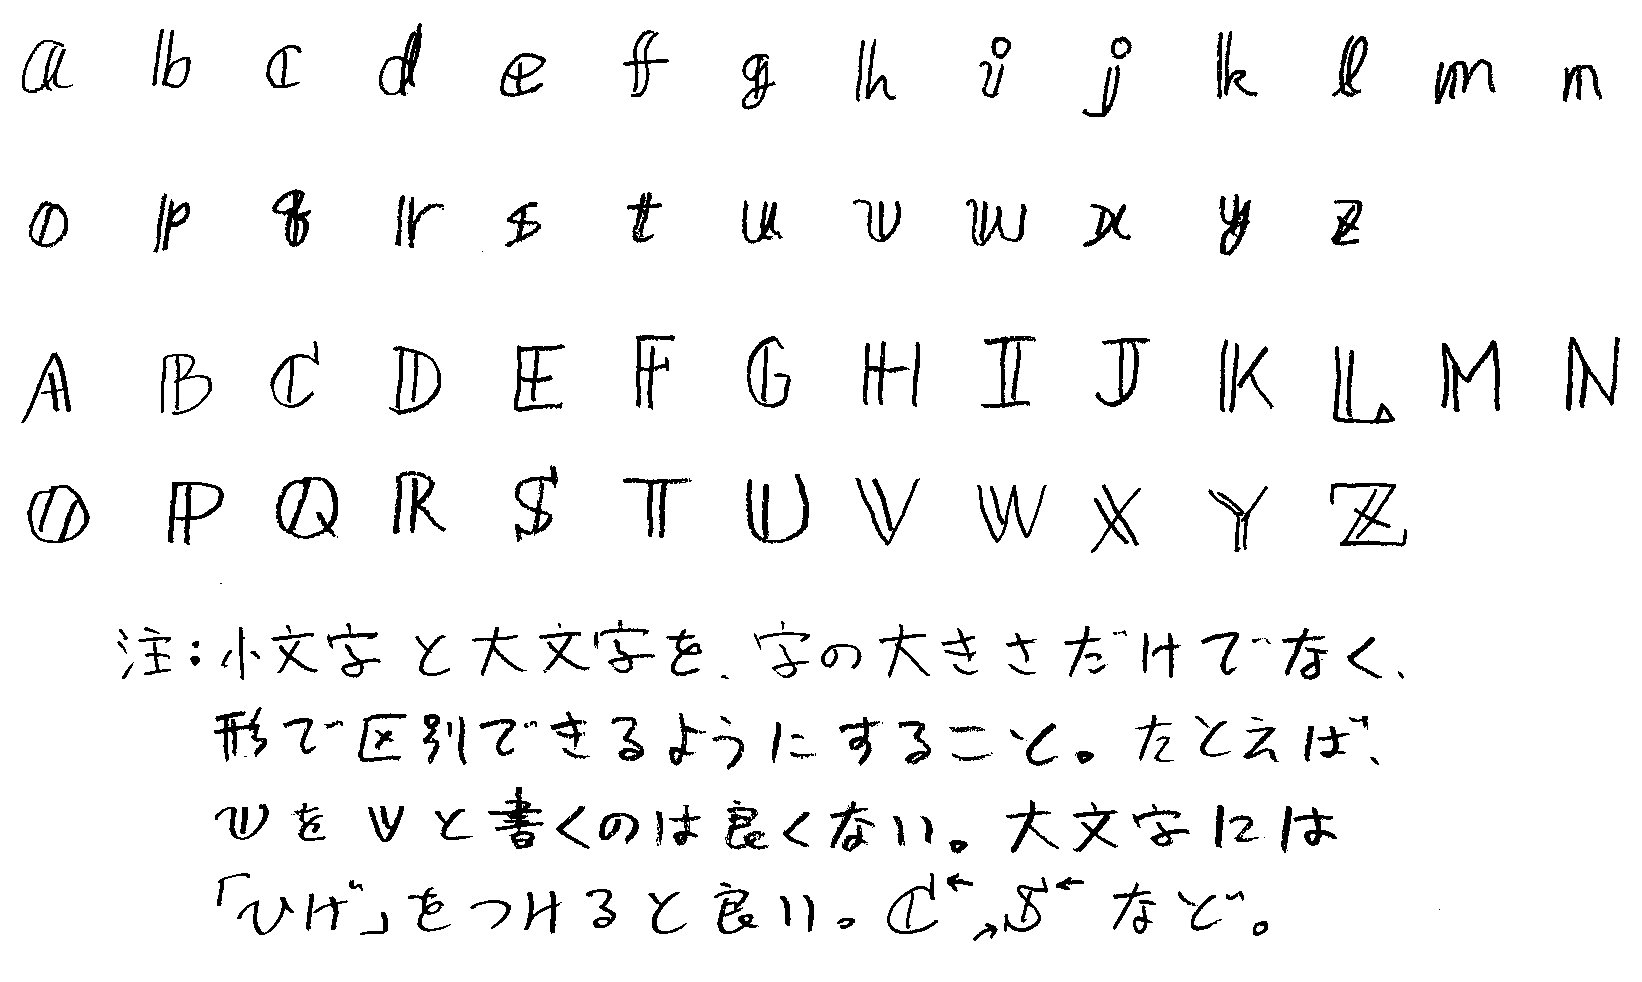 a b c d e f g h i j k l m n
o p q r s t u v w x y z
A B C D E F G H I J K L M N
O P Q R S T U V W X Y Z
注：小文字と大文字を、字の大きさだけでなく、
形で区別できるようにすること。たとえば、
vをvと書くのは良くない。大文字には
「ひげ」をつけると良い。C← →S← など。